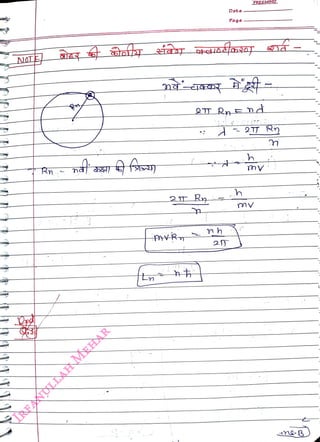 Date
Page
NOTE] बोहर की कोणीय संवेग क्वान्टीकरण शर्त -
nवें-चक्कर में दूरी -
Rn
2π Rn = nλ
∵ λ = 2π Rn / n
∵ Rn - nवीं कक्षा की त्रिज्या
∵ λ = h / mv
2π Rn / n = h / mv
mvRn = nh / 2π
Ln = nħ
IRFANULLAH MEHAR